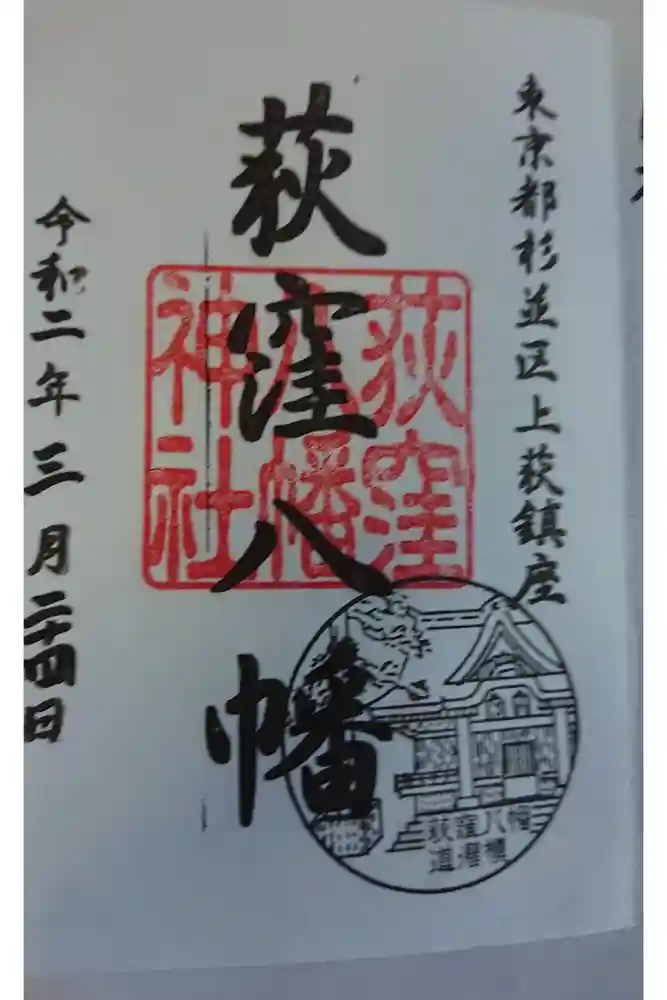 東京都杉並区上荻鎮座
荻窪八幡
荻窪
八幡
神社
荻窪八幡
道灌槇
令和二年三月二十四日